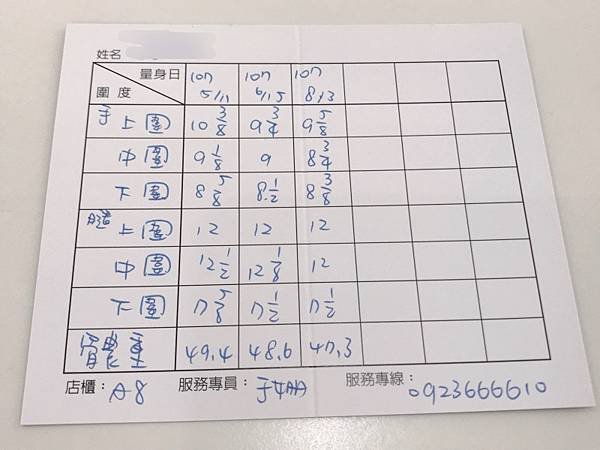 姓名
量身日 107 107 107
圍度 5/11 6/15 8/3
手 上圍 10 3/8 9 3/4 9 5/8
中圍 9 1/8 9 8 3/4
下圍 8 5/8 8 1/2 8 3/8
腿 上圍 12 12 12
中圍 12 1/2 12 1/8 12
下圍 17 5/8 17 1/2 17 1/2
體重 49.4 48.6 47.3
店櫃：A-8 服務專員： 服務專線：0923666610